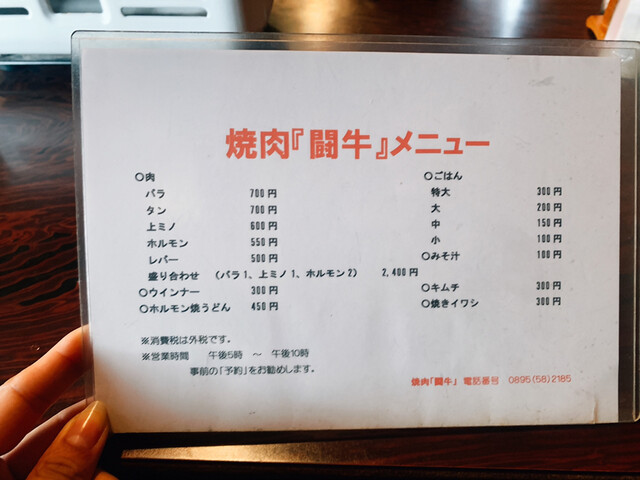 焼肉『闘牛』メニュー
〇肉
バラ 700円
タン 700円
上ミノ 600円
ホルモン 550円
レバー 500円
盛り合わせ （バラ1、上ミノ1、ホルモン2） 2,400円
〇ウインナー 300円
〇ホルモン焼うどん 450円
〇ごはん
特大 300円
大 200円
中 150円
小 100円
〇みそ汁 100円
〇キムチ 300円
〇焼きイワシ 300円
※消費税は外税です。
※営業時間 午後5時 ～ 午後10時
事前の「予約」をお勧めします。
焼肉「闘牛」 電話番号 0895(58)2185